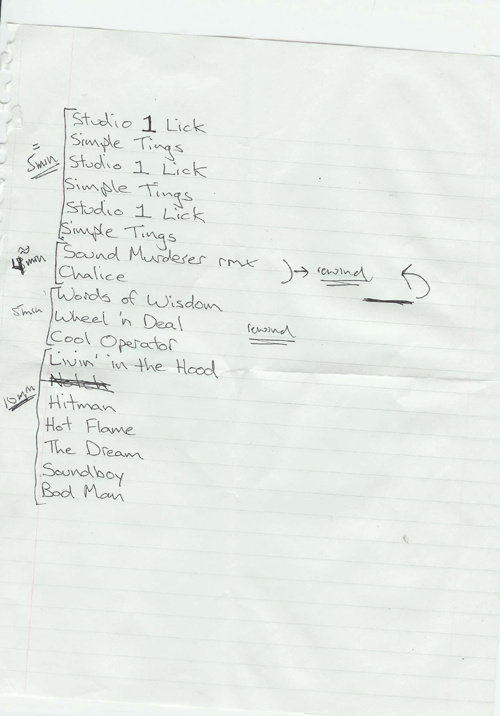 Studio 1 Lick
=
Simple Tings
5min
Studio 1 Lick
Simple Tings
Studio 1 Lick
Simple Tings
≈
4min
Sound Murderer rmx
Chalice → rewind
Words of Wisdom
5min
Wheel 'n Deal
Cool Operator rewind
Livin' in the Hood
10min
Hitman
Hot Flame
The Dream
Soundboy
Bad Man